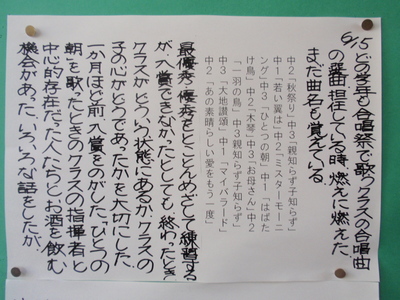 6/15どの学年も合唱祭で歌うクラスの合唱曲
の番。担任している時、燃えに燃えた。
まだ曲名も覚えている。
中2「秋祭り」中3「親知らず子知らず」
中1「若い翼は」中2「ミスターモーニ
ング」中3「ひとつの朝」中1「はばた
け鳥」中2「木琴」中3「お母さん」中2
「一羽の鳥」中3「親知らず子知らず」
中3「大地讃頌」中1「マイバラード」
中2「あの素晴らしい愛をもう一度」
最優秀、優秀をとことんめざして練習する
が、入賞できなかったとしても、終わったとき
クラスがどういう状態にあるか、クラスの
子の心がどうであたかを大切にした。
一か月ほど前、入賞をのがした「ひとつの
朝」を歌ったときのクラスの指揮者と
中心的存在だった人たちとお酒を飲む
機会があった。いろいろな話をしたが、